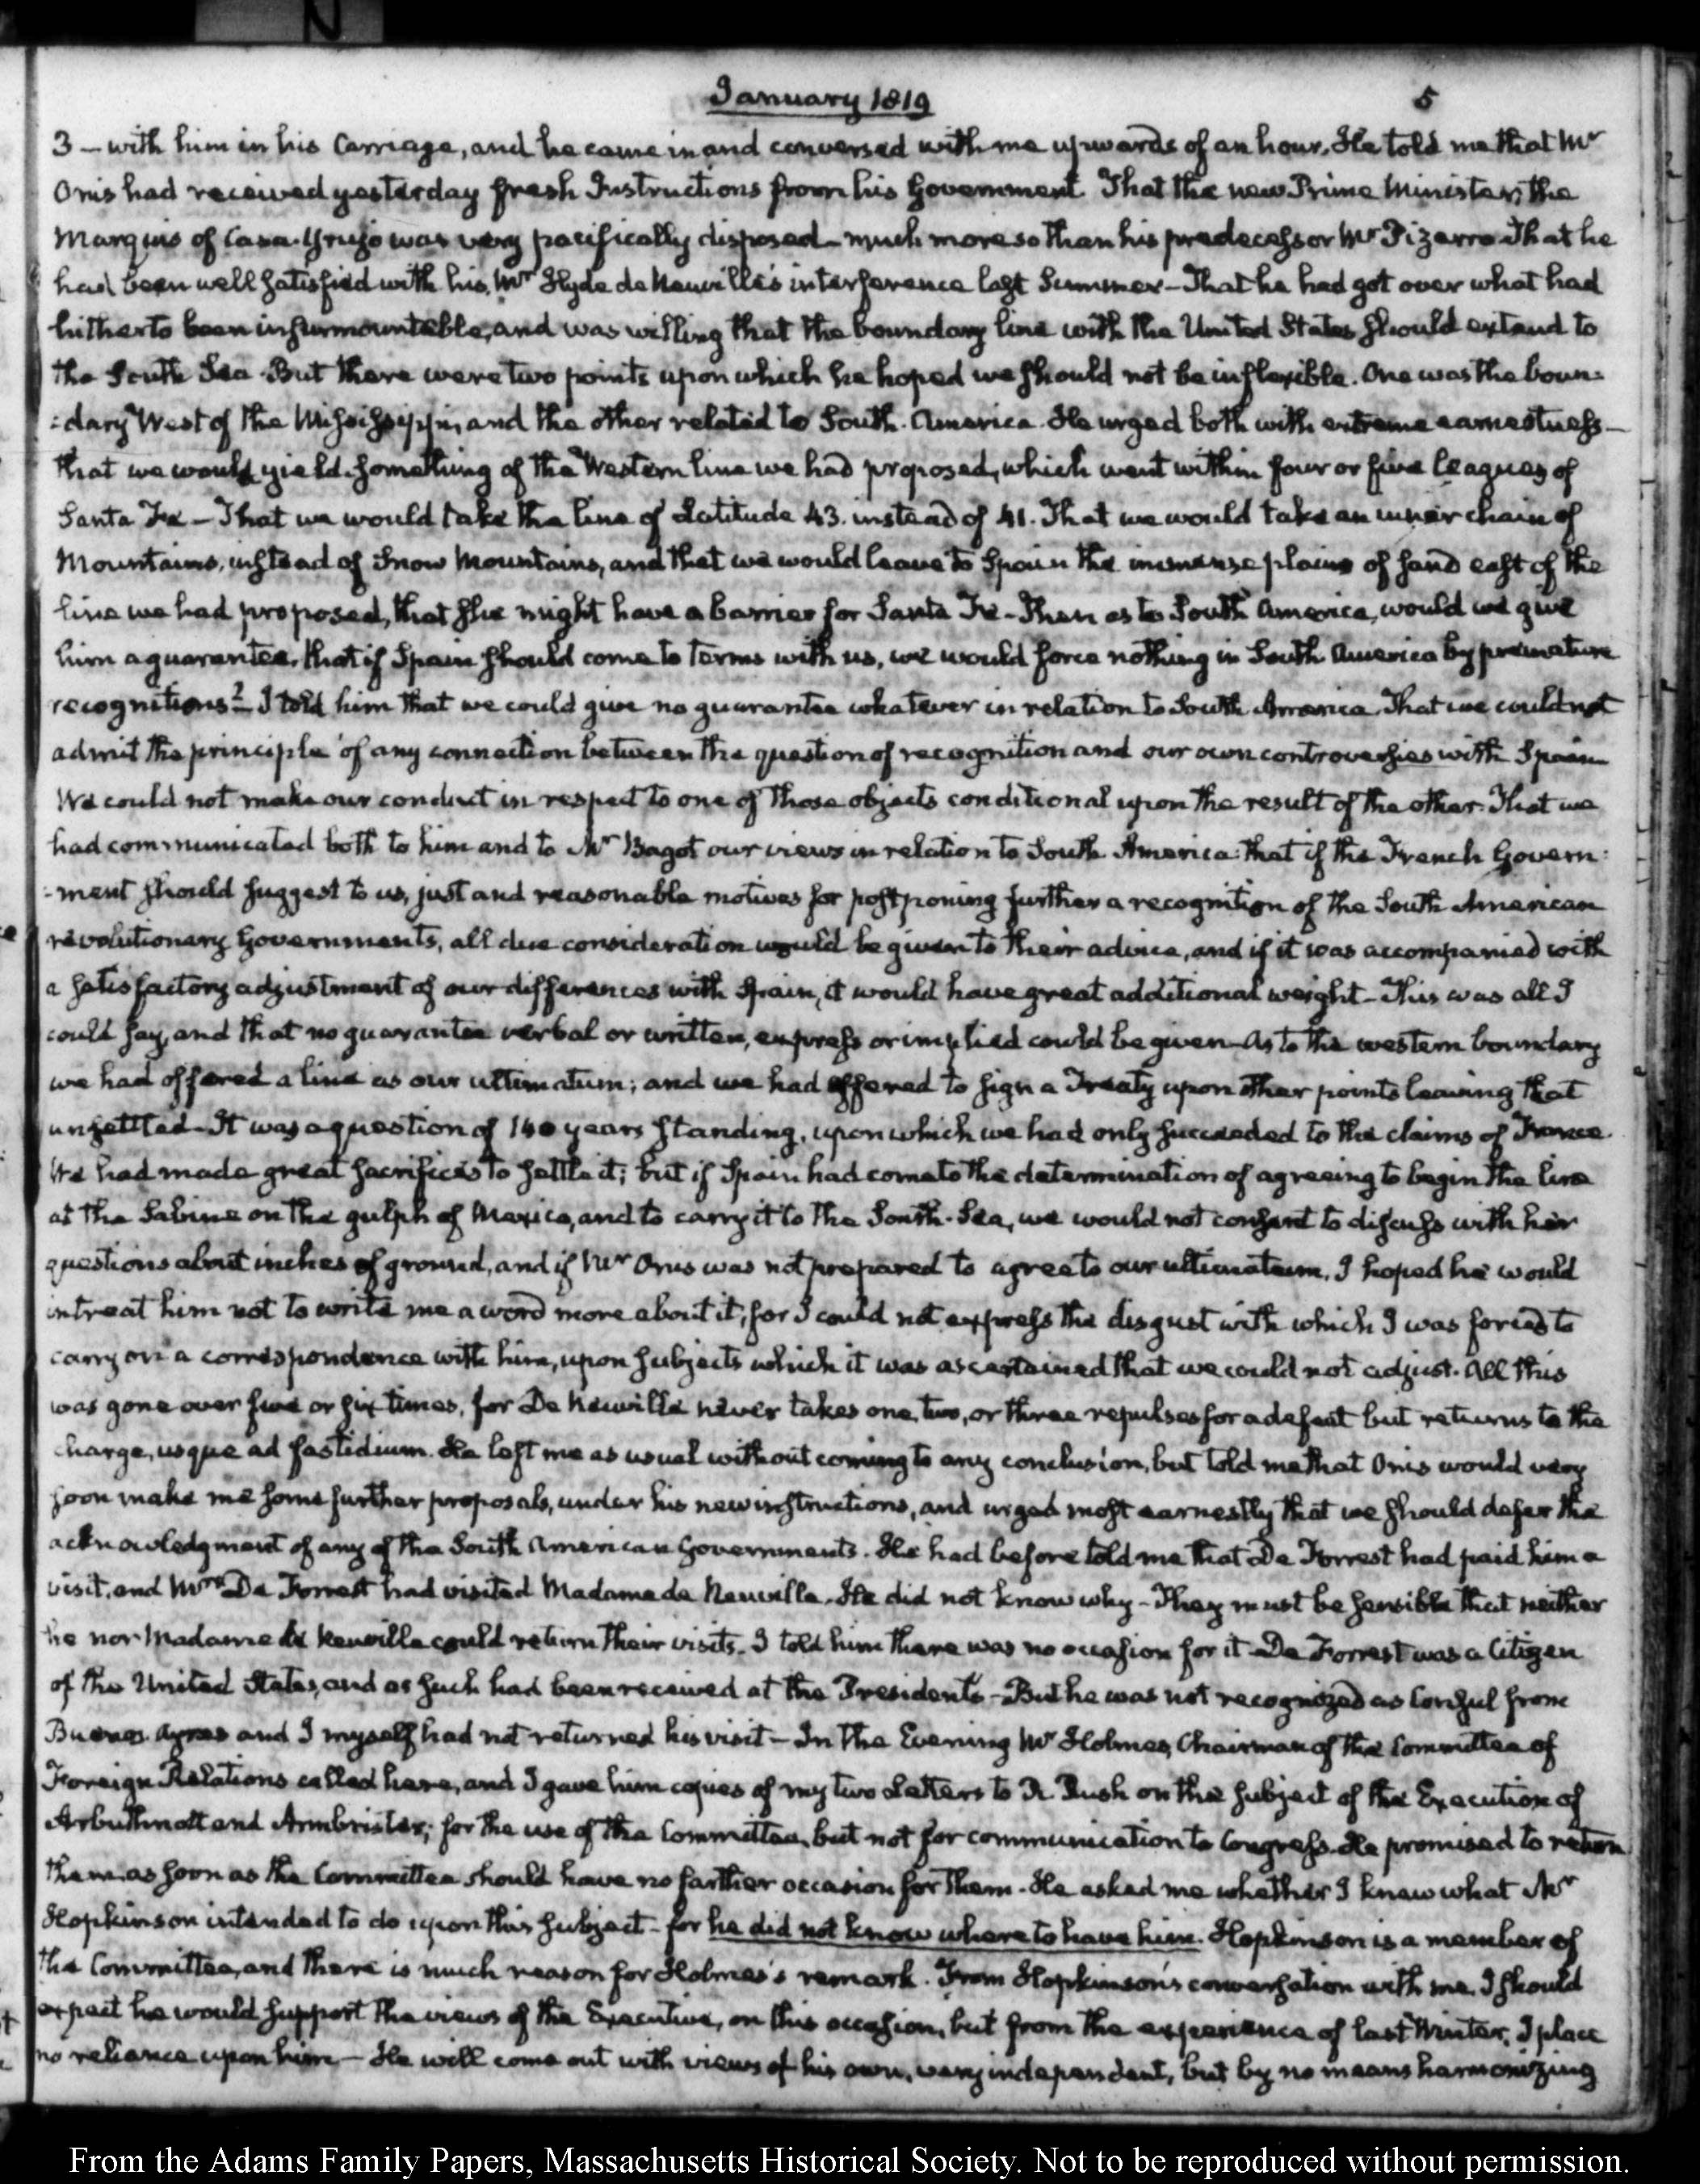 January 1819
5
3 – with him in his Carriage, and he came in and conversed with me upwards of an hour. He told me that Mr
Onis had received yesterday fresh Instructions from his Government. That the new Prime Minister, the
Marquis of Casa-Yrujo was very pacifically disposed – much more so than his predecessor Mr Pizarro. That he
had been well satisfied with his, Mr Hyde de Neuville's interference last Summer – That he had got over what had
hitherto been insurmountable, and was willing that the boundary line with the United States should extend to
the South Sea. But there were two points upon which he hoped we should not be inflexible. One was the boun=
=dary West of the Mississippi, and the other related to South-America. He urged both with extreme earnestness –
that we would yield something of the Western line we had proposed, which went within four or five leagues of
Santa Fe – That we would take the line of Latitude 43. instead of 41. That we would take an inner chain of
Mountains, instead of Snow Mountains, and that we would leave to Spain the immense plains of sand east of the
line we had proposed, that she might have a barrier for Santa Fe – Then as to South America, would we give
him a guarantee, that if Spain should come to terms with us, we would force nothing in South America by premature
recognitions? – I told him that we could give no guarantee whatever in relation to South America. That we could not
admit the principle of any connection between the question of recognition and our own controversies with Spain
We could not make our conduct in respect to one of those objects conditional upon the result of the other. That we
had communicated both to him and to Mr Bagot our views in relation to South America: that if the French Govern=
=ment should suggest to us, just and reasonable motives for postponing further a recognition of the South American
revolutionary Governments, all due consideration would be given to their advice, and if it was accompanied with
a satisfactory adjustment of our differences with Spain, it would have great additional weight – This was all I
could say, and that no guarantee verbal or written, express or implied could be given – As to the western boundary
we had offered a line as our ultimatum; and we had offered to sign a Treaty upon other points leaving that
unsettled – It was a question of 140 years standing, upon which we had only succeeded to the claims of France.
We had made great sacrifices to settle it; but if Spain had come to the determination of agreeing to begin the line
at the Sabine on the gulph of Mexico, and to carry it to the South-Sea, we would not consent to discuss with her
questions about inches of ground, and if Mr Onis was not prepared to agree to our ultimatum, I hoped he would
intreat him not to write me a word more about it; for I could not express the disgust with which I was forced to
carry on a correspondence with him, upon subjects which it was ascertained that we could not adjust. All this
was gone over five or six times, for De Neuville never takes one, two, or three repulses for a defeat but returns to the
charge, usque ad fastidium. He left me as usual without coming to any conclusion, but told me that Onis would very
soon make me some further proposals, under his new instructions, and urged most earnestly that we should defer the
acknowledgment of any of the South American Governments. He had before told me that De Forrest had paid him a
visit, and Mrs De Forrest had visited Madame de Neuville. He did not know why – They must be sensible that neither
he nor Madame de Neuville could return their visits. I told him there was no occasion for it – De Forrest was a Citizen
of the United States, and as such had been received at the President's – But he was not recognized as Consul from
Buenos-Ayres and I myself had not returned his visit – In the Evening Mr Holmes, Chairman of the Committee of
Foreign Relations called here, and I gave him copies of my two Letters to R. Rush on the subject of the Execution of
Arbuthnott and Armbrister; for the use of the Committee, but not for communication to Congress. He promised to return
them as soon as the Committee should have no farther occasion for them. He asked me whether I knew what Mr
Hopkinson intended to do upon this subject – for he did not know where to have him. Hopkinson is a member of
the Committee, and there is much reason for Holmes's remark. From Hopkinson's conversation with me, I should
expect he would support the views of the Executive, on this occasion, but from the experience of last Winter, I place
no reliance upon him – He will come out with views of his own, very independent, but by no means harmonizing
From the Adams Family Papers, Massachusetts Historical Society. Not to be reproduced without permission.